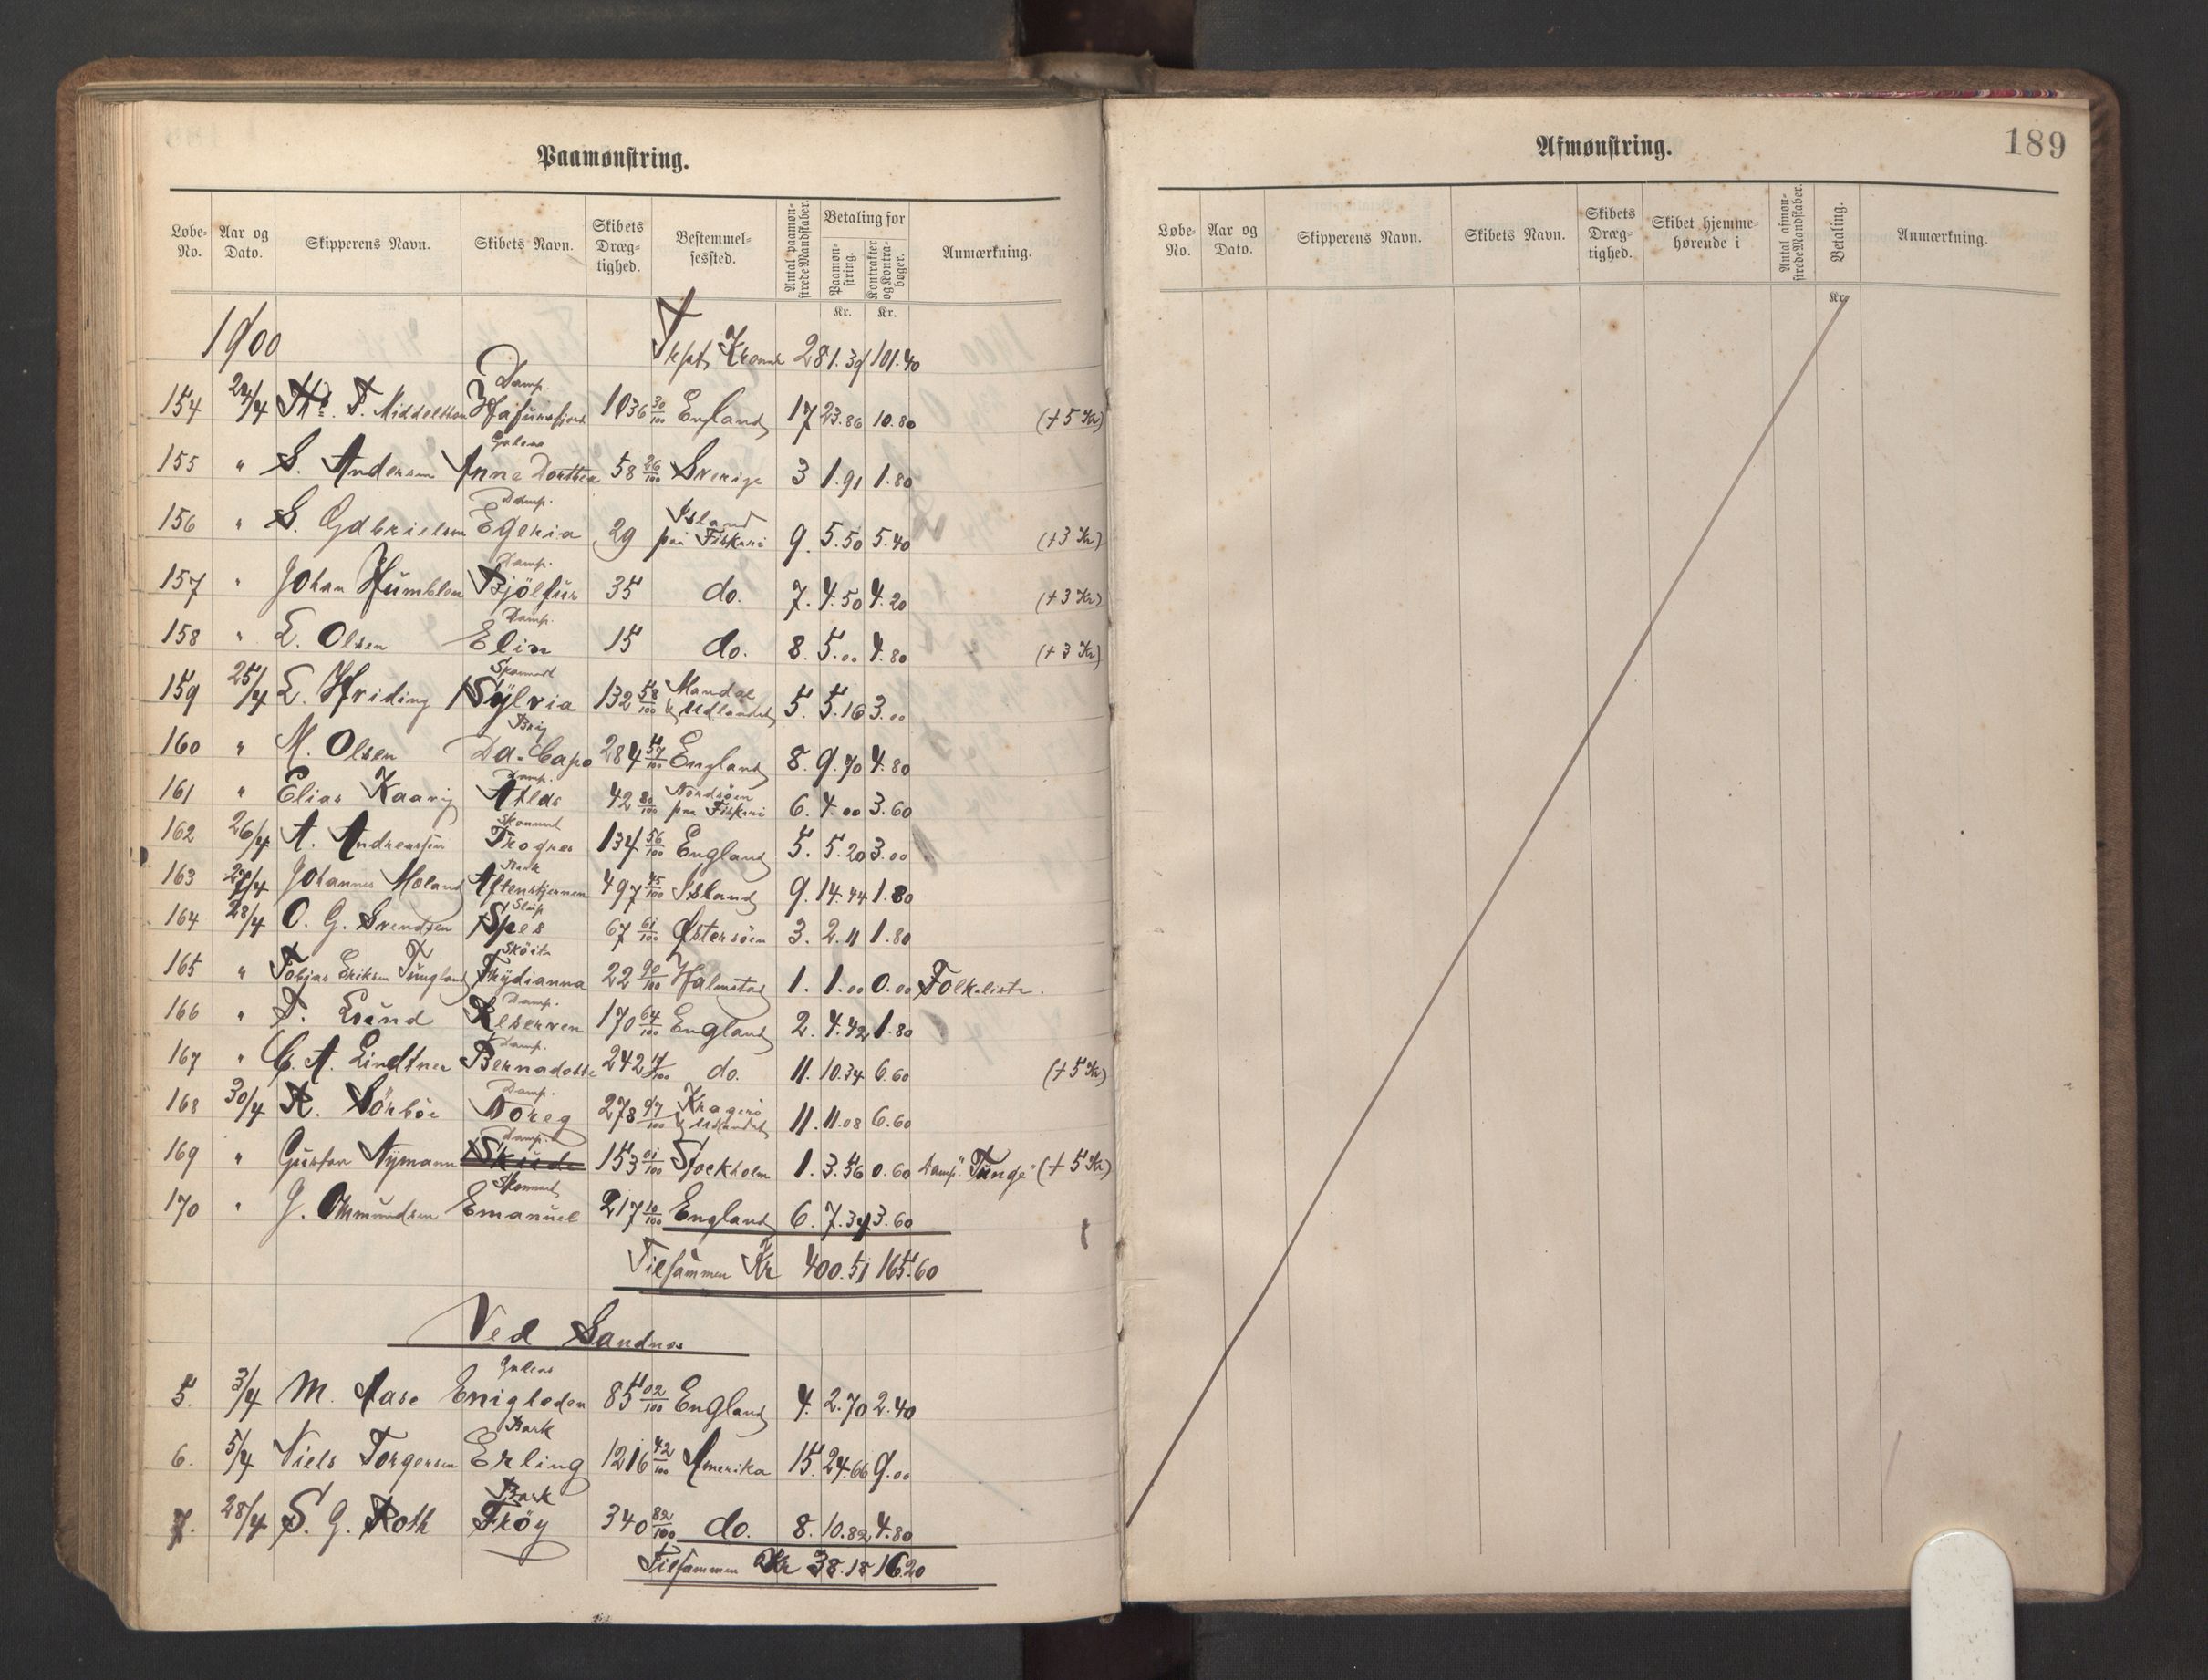 Paamønstring.
Løbe-No. Aar og Dato. Skipperens Navn. Skibets Navn. Skibets Dræg-tighed. Bestemmel-sessted. Antal paamøn-strede Mandskaber. Betaling for Paamøn-string. Kontrakter og Kontra-bøger. Anmærkning.
Kr. Kr.
1900 Trspt. Kroner 281.39 101.40
Damp.
154 24/4 Th. T. Middelthon 1036 30/100 England 17 23.86 10.80 (+5 Kr)
Galeas
155 " S. Andersen Anne Dorthea 58 26/100 Sverige 3 1.91 1.80
Damp.
156 " S. Gabrielsen Egeria 29 Island paa Fiskeri 9. 5.50 5.40 (+3 Kr)
Damp.
157 " Johan Humblen Bjölfur 35 do. 7. 4.50 4.20 (+3 Kr)
Damp.
158 " L. Olsen Elin 15 do. 8. 5.00 4.80 (+3 Kr)
Skonnert
159 25/4 L. Hriding Sylvia 132 58/100 Mandal & udlandet 5. 5.16 3.00
Brig
160 " M. Olsen Da-Capo 284 57/100 England 8. 9.70 4.80
Damp.
161 " Elias Kaarig Atlas 42 80/100 Nordsöen paa Fiskeri 6. 4.00 3.60
Skonnert
162 26/4 A. Andreassen Progres 134 56/100 England 5. 5.20 3.00
Bark
163 27/4 Johannes Moland Aftenstjernen 497 45/100 Island 9. 14.44 1.80
Slup
164 28/4 O. G. Svendsen Spes 67 61/100 Østersöen 3. 2.11 1.80
Sköite
165 " Tobias Eriksen Tungland Frydianna 22 90/100 Halmstad 1. 1.00 0.00 Folkeliste.
Damp.
166 " T. Lund Reserven 170 64/100 England 2. 4.42 1.80
Damp.
167 " C. A. Lindtner Bernadotte 242 14/100 do. 11. 10.34 6.60 (+5 Kr)
Damp.
168 30/4 R. Sörböe Noreg 278 97/100 Kragerö & udlandet 11. 11.08 6.60
Damp.
169 " Gustav Nymann Skude 153 01/100 Stockholm 1. 3.56 0.60 Damp. "Tunge" (+5 Kr)
Skonnert
170 " G. Omundsen Emanuel 217 10/100 England 6. 7.34 3.60
Tilsammen Kr 400.51 165.60
Ved Sandnes
Galeas
5. 3/4 M. Aase Enigheden 85 02/100 England 4. 2.70 2.40
Bark
6. 5/4 Niels Torgersen Erling 1216 42/100 Amerika 15. 24.66 9.00
Bark
7. 28/4 S. G. Roth Fröy 340 82/100 do. 8. 10.82 4.80
Tilsammen Kr 38.18 16.20
Afmønstring.
189
Løbe-No. Aar og Dato. Skipperens Navn. Skibets Navn. Skibets Dræg-tighed. Skibet hjemme-hørende i Antal afmøn-strede Mandskaber. Betaling. Anmærkning.
Kr.